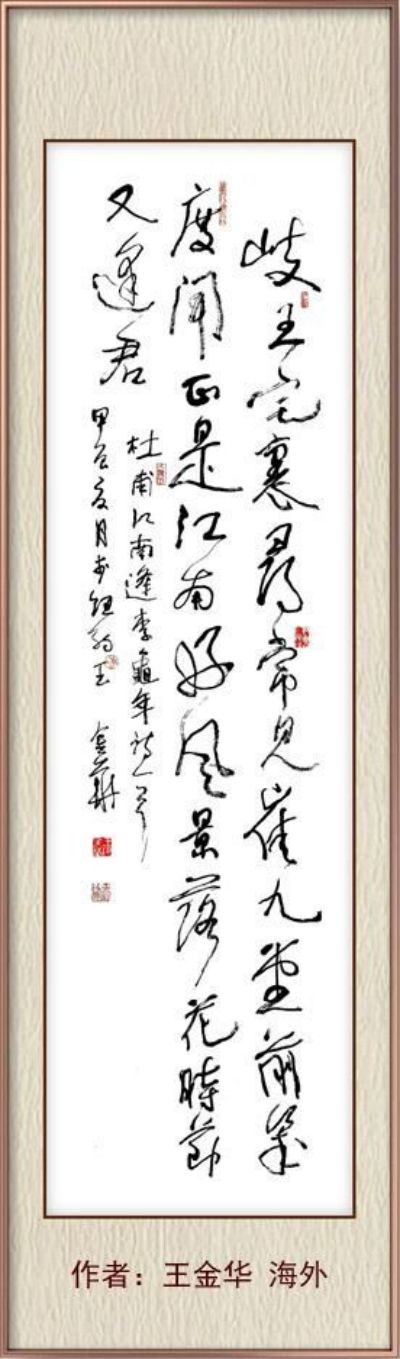 岐王宅裏尋常見崔九堂前幾
度聞正是江南好風景落花時節
又逢君
杜甫江南逢李龜年詩一首
甲辰夏月書於紐約王金華
作者：王金华 海外